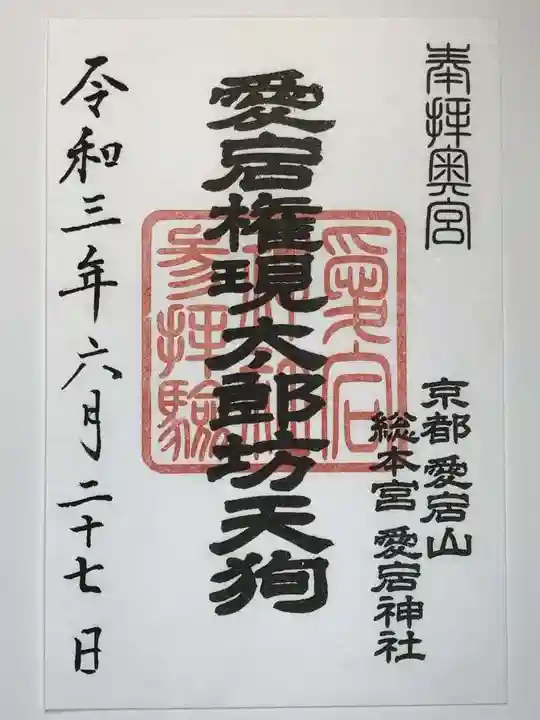 奉拝奥宮
京都 愛宕山
総本宮 愛宕神社
愛宕権現太郎坊天狗
愛宕
神社
参拝験
令和三年六月二十七日